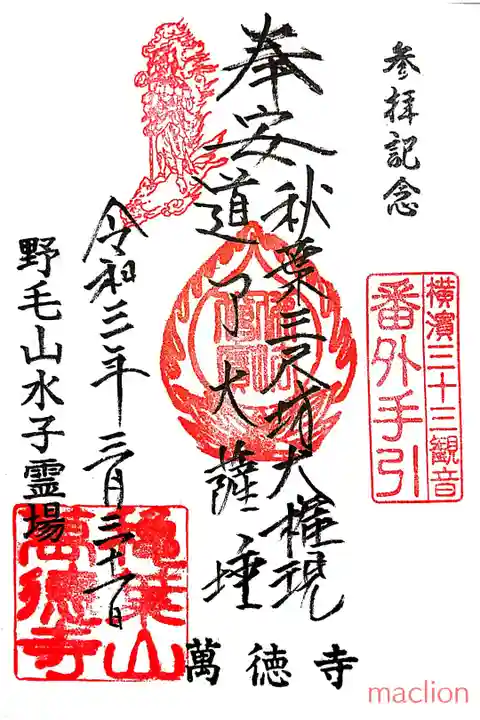 参拝記念
横濱三十三観音
番外手引
奉安
秋葉三尺坊大権現
道了大薩埵
令和三年三月三十一日
野毛山水子霊場
秋葉山
萬徳寺
萬徳寺
maclion